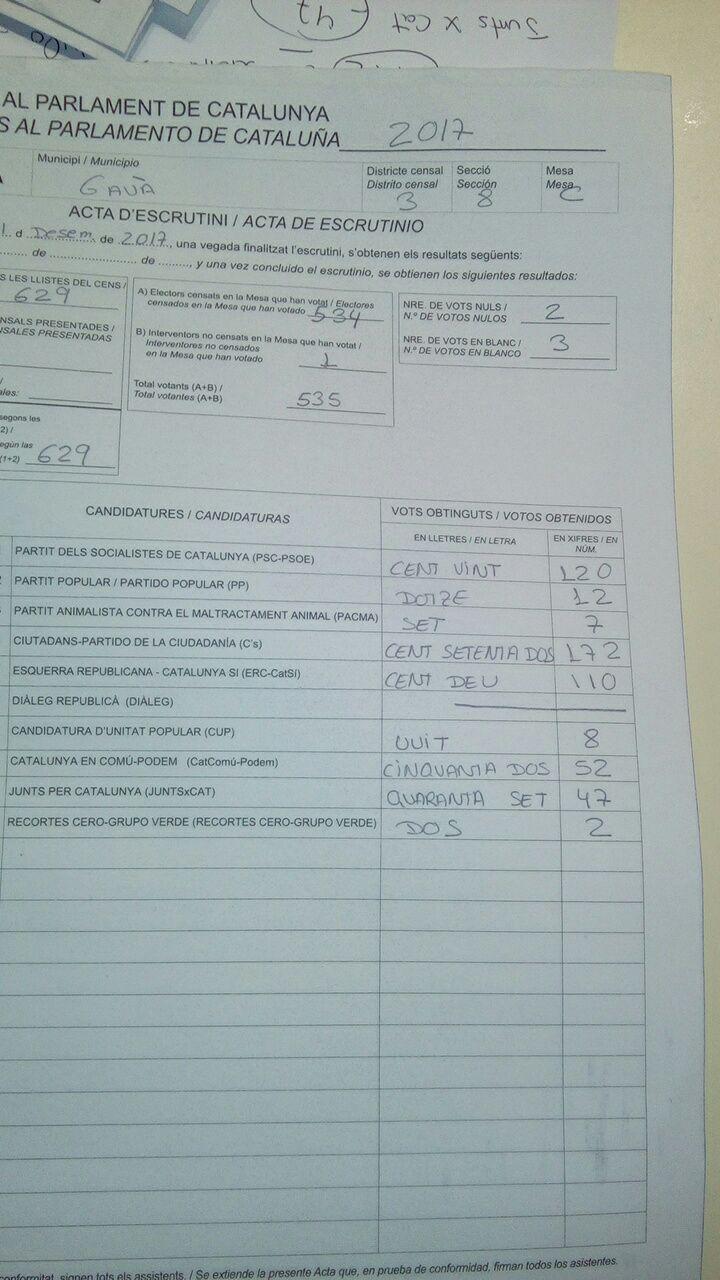 Junts x Cat 47
AL PARLAMENT DE CATALUNYA
S AL PARLAMENTO DE CATALUÑA 2017
Municipi / Municipio
GAVÀ
Districte censal
Distrito censal
3
Secció
Sección
8
Mesa
Mesa
C
ACTA D'ESCRUTINI / ACTA DE ESCRUTINIO
d Desem. de 2017, una vegada finalitzat l'escrutini, s'obtenen els resultats següents:
de de , y una vez concluido el escrutinio, se obtienen los siguientes resultados:
LES LLISTES DEL CENS /
629
NSALS PRESENTADES /
NSALES PRESENTADAS
ales:
segons les
2) /
egún las
(1+2) 629
A) Electors censats en la Mesa que han votat / Electores
censados en la Mesa que han votado 534
B) Interventors no censats en la Mesa que han votat /
Interventores no censados
en la Mesa que han votado 1
Total votants (A+B) /
Total votantes (A+B) 535
NRE. DE VOTS NULS /
N.º DE VOTOS NULOS 2
NRE. DE VOTS EN BLANC /
N.º DE VOTOS EN BLANCO 3
CANDIDATURES / CANDIDATURAS
VOTS OBTINGUTS / VOTOS OBTENIDOS
EN LLETRES / EN LETRA
EN XIFRES / EN NÚM.
PARTIT DELS SOCIALISTES DE CATALUNYA (PSC-PSOE) CENT VINT 120
PARTIT POPULAR / PARTIDO POPULAR (PP) DOTZE 12
PARTIT ANIMALISTA CONTRA EL MALTRACTAMENT ANIMAL (PACMA) SET 7
CIUTADANS-PARTIDO DE LA CIUDADANÍA (C's) CENT SETENTA DOS 172
ESQUERRA REPUBLICANA - CATALUNYA SI (ERC-CatSI) CENT DEU 110
DIÀLEG REPUBLICÀ (DIÀLEG)
CANDIDATURA D'UNITAT POPULAR (CUP) VUIT 8
CATALUNYA EN COMÚ-PODEM (CatComú-Podem) CINQUANTA DOS 52
JUNTS PER CATALUNYA (JUNTSxCAT) QUARANTA SET 47
RECORTES CERO-GRUPO VERDE (RECORTES CERO-GRUPO VERDE) DOS 2
conformitat, signen tots els assistents. / Se extiende la presente Acta que, en prueba de conformidad, firman todos los asistentes.